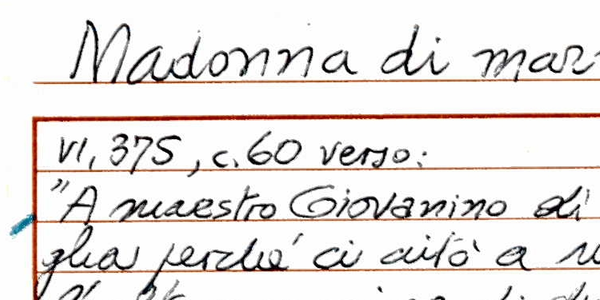 Madonna di mar
VI, 375, c. 60 verso:
"A maestro Giovanino di
glia perché ci aitò a